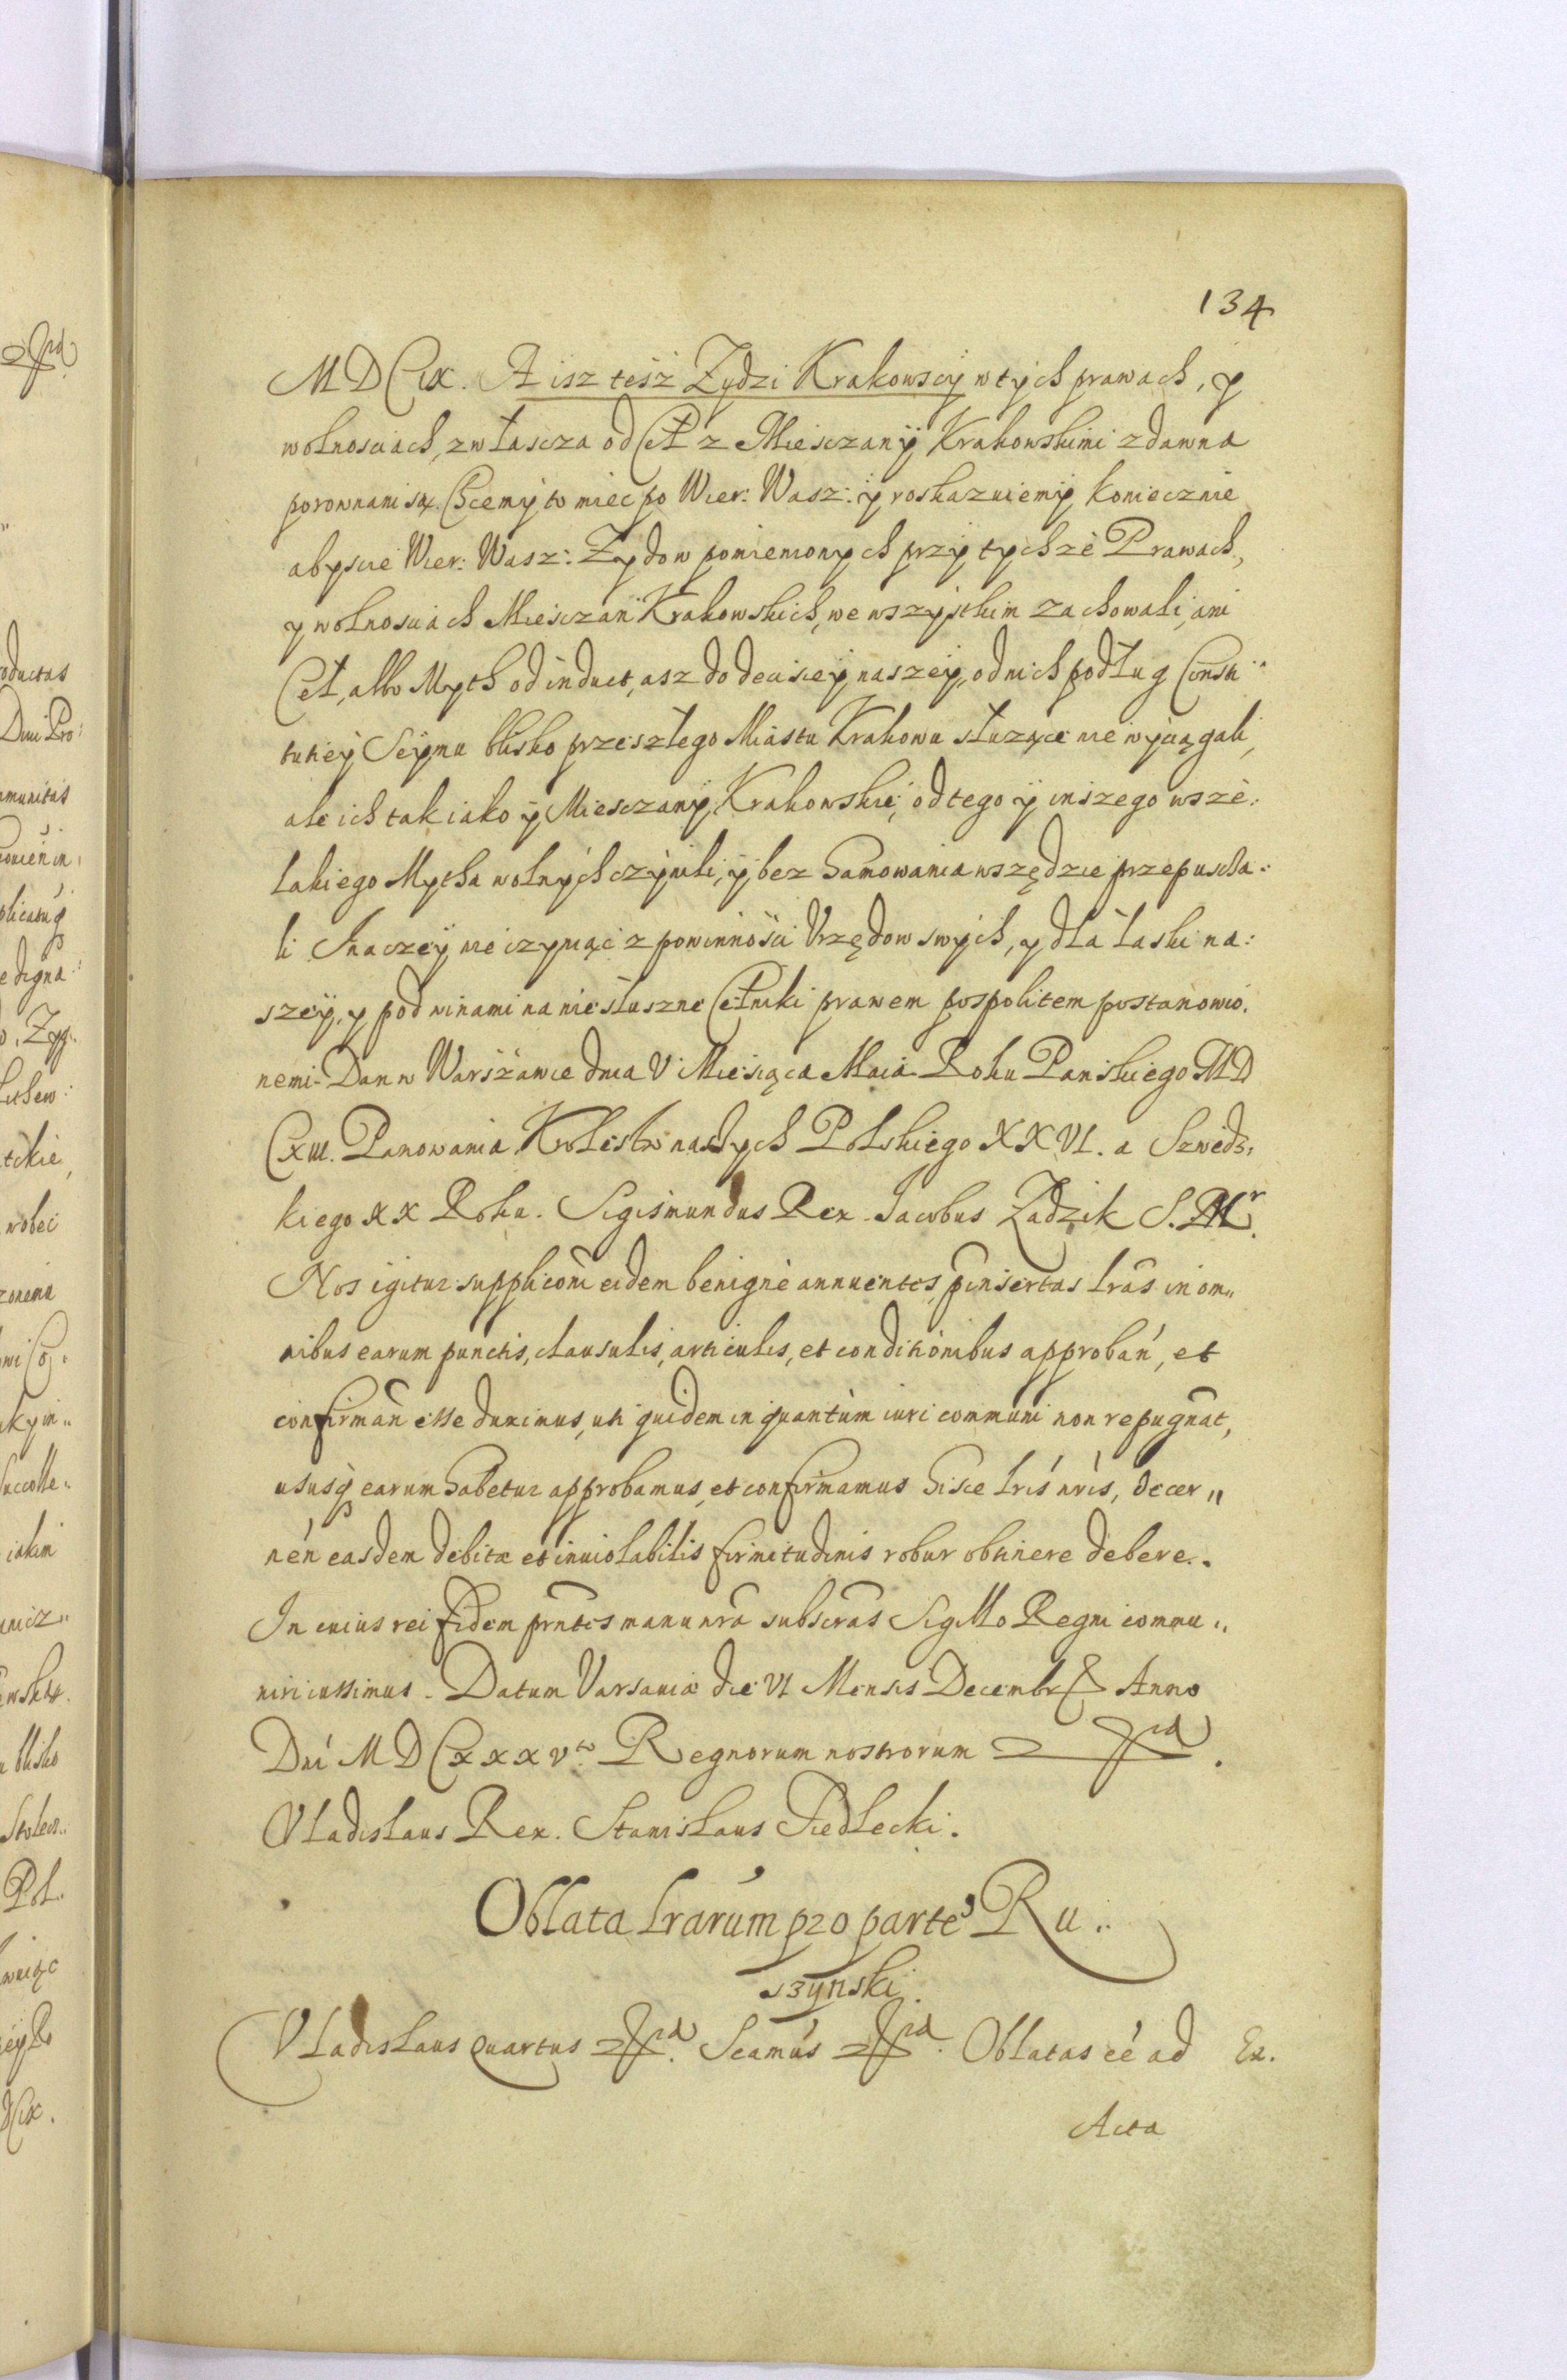 134
MDCix. A isz tesz Zydzi Krakowscy w tych prawach, y
wolnosciach, zwłascza od Ceł z Miesczany Krakowskimi zdawna
porownani są. Chcemy to miec po Wier: Wasz: y roskazuiemy koniecznie
abyscie Wier: Wasz: Zydow pomienionych przy tychże Prawach,
y wolnosciach Miesczan Krakowskich, we wszystkim zachowali, ani
Ceł, albo Myth od induct, asz do decisiey naszey, od nich podług Consti„
tutiey Seymu blisko przeszłego Miastu Krakowu służące nie wyciągali,
ale ich tak iako y Miesczany Krakowskie, od tego y inszego wsze„
lakiego Mytha wolnych czynili, y bez hamowania wszędzie przepuscza„
li. Inaczey nie czyniąc z powinności Vrzędow swych, y dla łaski na„
szey, y pod winami na niesłuszne Celniki prawem pospolitem postanowio„
nemi. Dan w Warszawie dnia V Miesiąca Maia Roku Panskiego MD
Cxiii. Panowania Krolestw naszych Polskiego XXVI. a Szwedz„
kiego XX Roku. Sigismundus Rex. Jacobus Zadzik S. R Mr.
Nos igitur suppliconi eidem benignè annuentes, pinsertas lras in om„
nibus earum punctis, clausulis, articulis, et conditionibus approban, et
confirman esse duximus, uti quidem in quantùm iuri communi non repugnat,
ususq earum habetur approbamus, et confirmamus hisce lris nris, decer„
nen easdem debitæ et inuiolabilis firmitudinis robur obtinere debere.
In cuius rei fidem prntes manu nra subscras Sigillo Regni commu„
niri iussimus. Datum Varsauiæ die VI Mensis Decembr Anno
Dni MDCxxxvto Regnorum nostrorum
Vladislaus Rex. Stanislaus Siedlecki.
Oblata lrarum pro parte Ru„
szynski.
Vladislaus quartus Scamus Oblatas eé ad Ex.
Acta